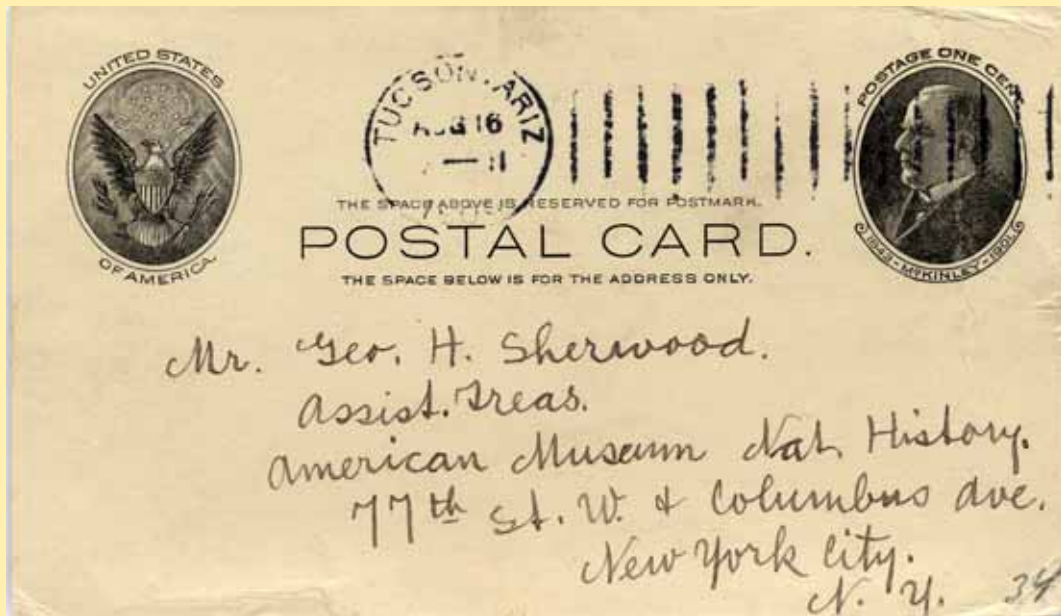 UNITED STATES
OF AMERICA.
TUCSON, ARIZ
AUG 16
POSTAGE ONE CENT
1843-McKINLEY-1901.
THE SPACE ABOVE IS RESERVED FOR POSTMARK.
POSTAL CARD.
THE SPACE BELOW IS FOR THE ADDRESS ONLY.
Mr. Geo. H. Sherwood.
Assist. Treas.
American Museum Nat. History.
77th St. W. & Columbus Ave.
New York City.
N. Y.
34